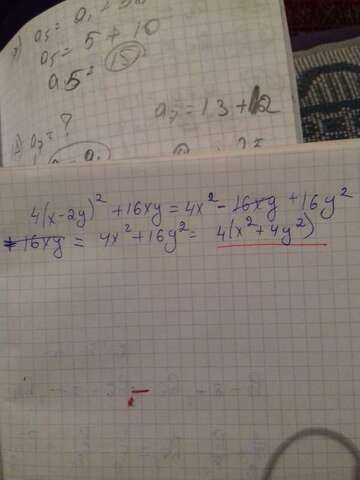 a₅ = 5 + 10
a5 = 15
a₇ = ?
a₇ = 13 + 12
4(x-2y)² + 16xy = 4x² - 16xy + 16y²
+ 16xy = 4x² + 16y² = 4(x² + 4y²)